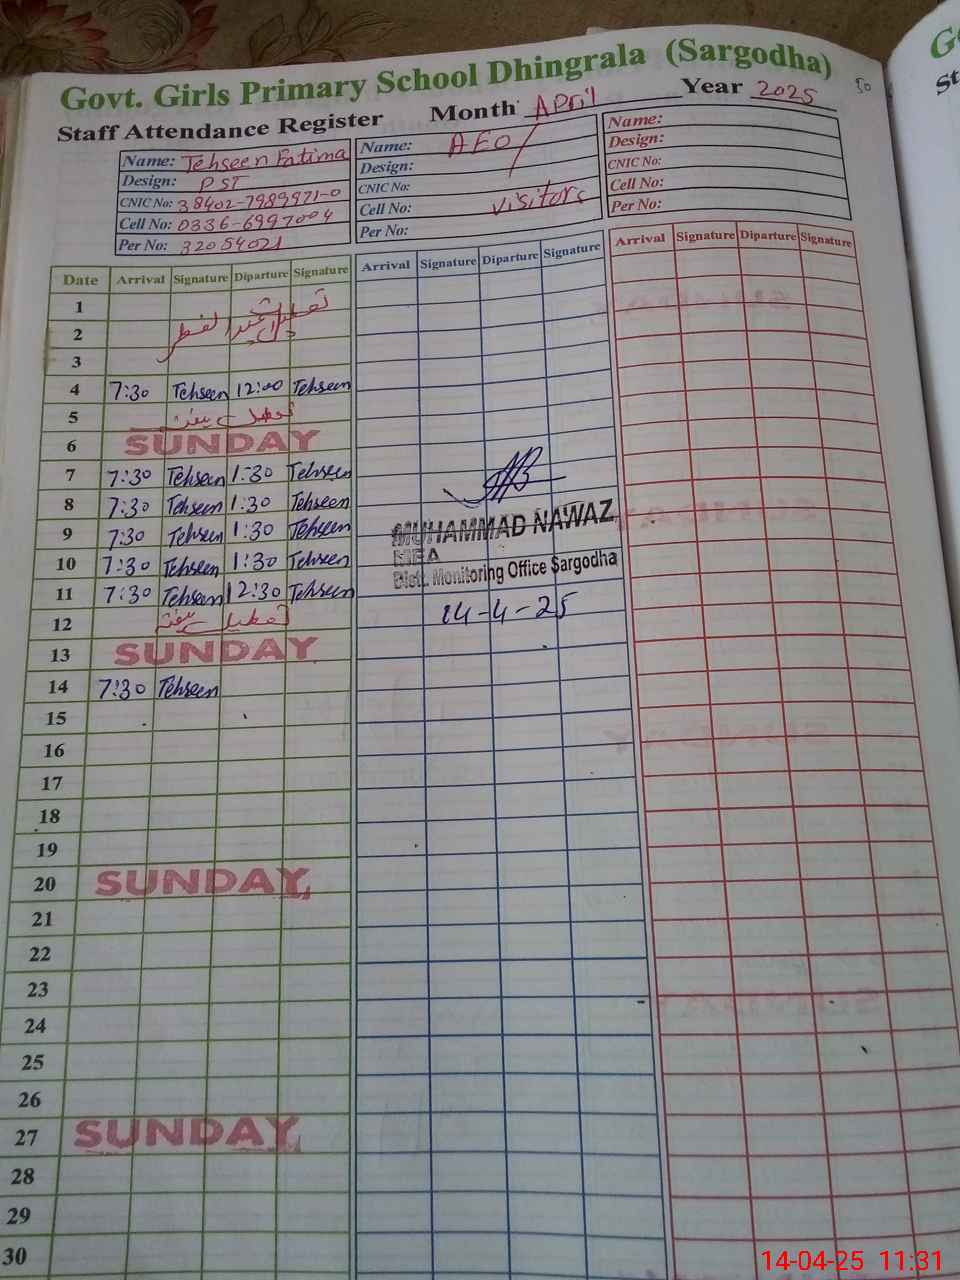 Govt. Girls Primary School Dhingrala (Sargodha)
50
Staff Attendance Register Month April Year 2025
Name: Tehseen Fatima
Design: PST
CNIC No: 38402-7989971-0
Cell No: 0336-6997004
Per No: 32054021
Name: AEO/
Design:
CNIC No:
Cell No: visitors
Per No:
Name:
Design:
CNIC No:
Cell No:
Per No:
Date Arrival Signature Diparture Signature Arrival Signature Diparture Signature Arrival Signature Diparture Signature
1
2 تعطیل عید الفطر
3
4 7:30 Tehseen 12:00 Tehseen
5 تعطیل
6 SUNDAY
7 7:30 Tehseen 1:30 Tehseen
8 7:30 Tehseen 1:30 Tehseen
9 7:30 Tehseen 1:30 Tehseen
10 7:30 Tehseen 1:30 Tehseen
11 7:30 Tehseen 12:30 Tehseen
MUHAMMAD NAWAZ
MEA
Distt. Monitoring Office Sargodha
14-4-25
12 تعطیل
13 SUNDAY
14 7:30 Tehseen
15
16
17
18
19
20 SUNDAY
21
22
23
24
25
26
27 SUNDAY
28
29
30
14-04-25 11:31